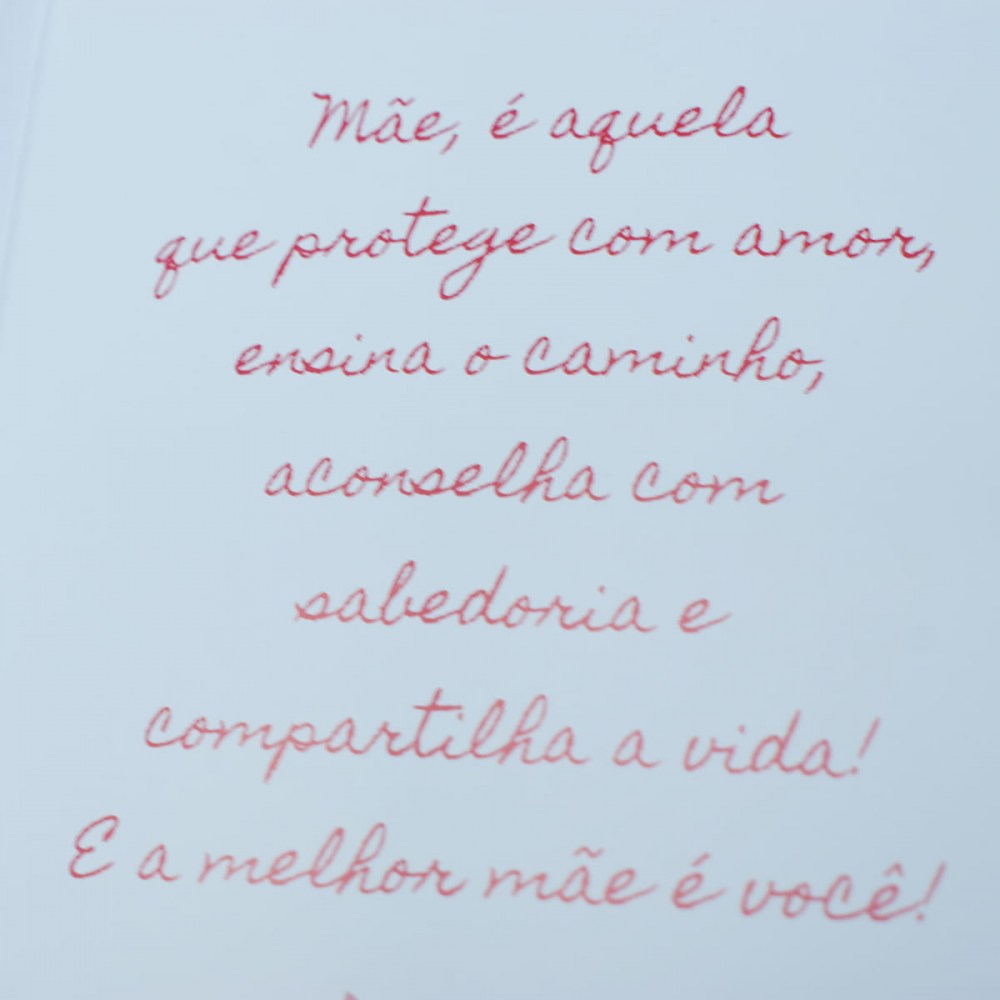 Mãe, é aquela
que protege com amor,
ensina o caminho,
aconselha com
sabedoria e
compartilha a vida!
E a melhor mãe é você!